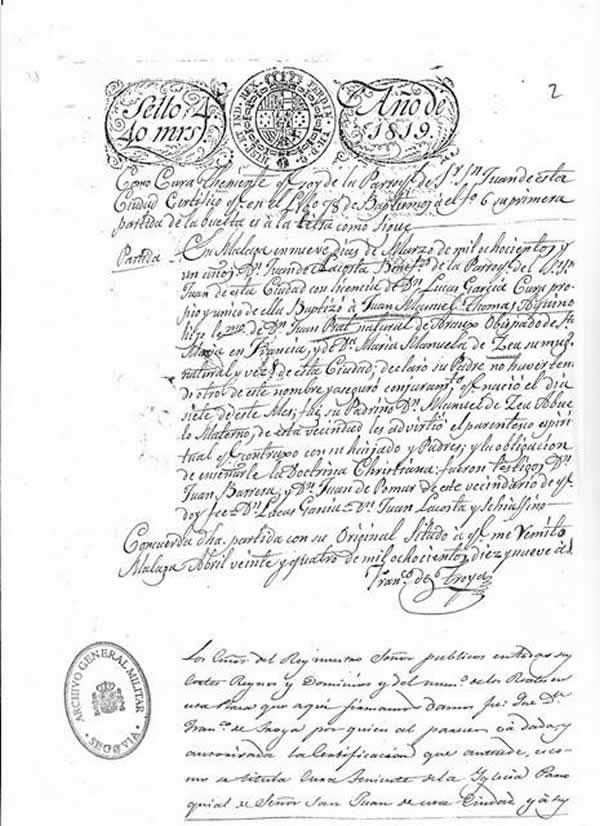 2
Sello 4.
40 mrs.
HISP. ET IND. REX FERDIN. VII. D. G.
Año de
1819.
Como Cura Theniente q.e soy de la Parroq.l de S.r S.n Juan de esta
Ciudad Certifico q.e en el Libro 78 de Baptismos á el f.o 6 su primera
partida de la buelta es á la letra como Sigue
Partida En Malaga en nueve dias de Marzo de mil ochocientos y
un años, D.n Juan de Lacosta Benef.do de la Parroq.l del S.r S.n
Juan de esta Ciudad con licencia de D.n Lucas Garcia Cura pro-
pio y unico de ella Baptizó á Juan Manuel Thomas Aquino
hijo lexmo. de D.n Juan Prat natural de Obispado de
en Francia, y de D.a Maria Manuela de Zea su mug.r
natural y vez.s de esta Ciudad; declaro su Padre no haver teni-
do otro de este nombre y aseguró con juram.to q.e nació el dia
siete de este Mes; fue su Padrino D.n Manuel de Zea Abue-
lo Materno, de esta vecindad les advirtió el parentesco espiri-
tual q.e contraxo con su haijado y Padres; y la obligacion
de enseñarle la Doctrina Christiana: fueron testigos D.n
Juan Barrera; y D.n Juan de Pomar de este vecindario de q.e
doy fee = D.n Lucas Garcia = D.n Juan Lacosta y
Concuerda dha. partida con su Original Sitado á q.e me remito
Malaga Abril veinte y quatro de mil ochocientos diez y nueve á.s
Fran.co de Troya
ARCHIVO GENERAL MILITAR
SEGOVIA
Los Esños. del Rey nuestro Señor publicos en todos sus
Cortes Reynos y Dominios y del num.o de los Reales en
esta Plaza que aqui firmamos Damos fee: que D.n
Fran.co de Troya por quien al parecer vá dada y
autorizada la Certificacion que antecede, es co-
mo se titula Cura Teniente de la Iglecia Parro-
quial de Señor San Juan de esta Ciudad y á sus